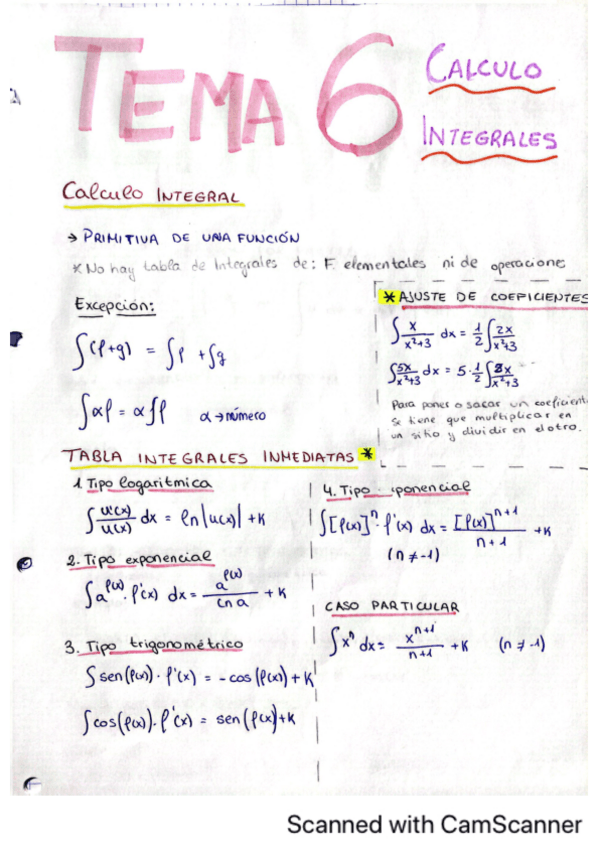 TEMA 6
CALCULO
INTEGRALES
Calculo INTEGRAL
→ PRIMITIVA DE UNA FUNCIÓN
* No hay tabla de Integrales de: F. elementales ni de operacione
Excepción:
∫(f+g) = ∫f + ∫g
∫αf = α∫f α→número
* AJUSTE DE COEFICIENTES
∫ x/(x²+3) dx = 1/2 ∫ 2x/(x²+3)
∫ 5x/(x²+3) dx = 5·1/2 ∫ 2x/(x²+3)
Para poner o sacar un coeficient
se tiene que multiplicar en
un sitio y dividir en el otro.
TABLA INTEGRALES INMEDIATAS *
1. Tipo logarítmica
∫ u'(x)/u(x) dx = ln|u(x)| + K
2. Tipo exponencial
∫a^f(x) · f'(x) dx = a^f(x)/Ln a + K
3. Tipo trigonométrico
∫ sen(f(x)) · f'(x) = -cos(f(x)) + K
∫cos(f(x)) · f'(x) = sen(f(x)) + K
4. Tipo iponencial
∫[f(x)]ⁿ · f'(x) dx = [f(x)]ⁿ⁺¹/(n+1) + K
(n ≠ -1)
CASO PARTICULAR
∫xⁿ dx = xⁿ⁺¹/(n+1) + K (n ≠ -1)
Scanned with CamScanner